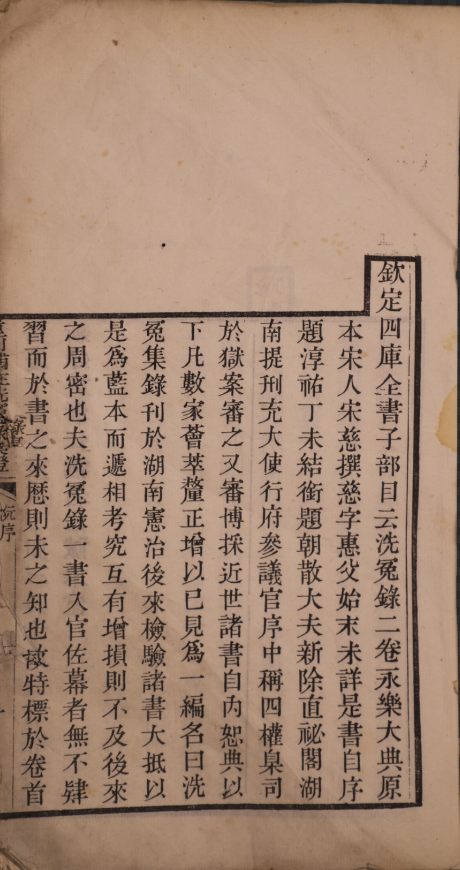 欽定四庫全書子部目云洗冤錄二卷永樂大典原
本宋人宋慈撰慈字惠父始末未詳是書自序
題淳祐丁未結銜題朝散大夫新除直祕閣湖
南提刑充大使行府參議官序中稱四權臬司
於獄案審之又審博採近世諸書自內恕典以
下凡數家薈萃釐正增以已見爲一編名曰洗
冤集錄刊於湖南憲治後來檢驗諸書大抵以
是爲藍本而遞相考究互有增損則不及後來
之周密也夫洗冤錄一書入官佐幕者無不肄
習而於書之來歷則未之知也故特標於卷首
阮序